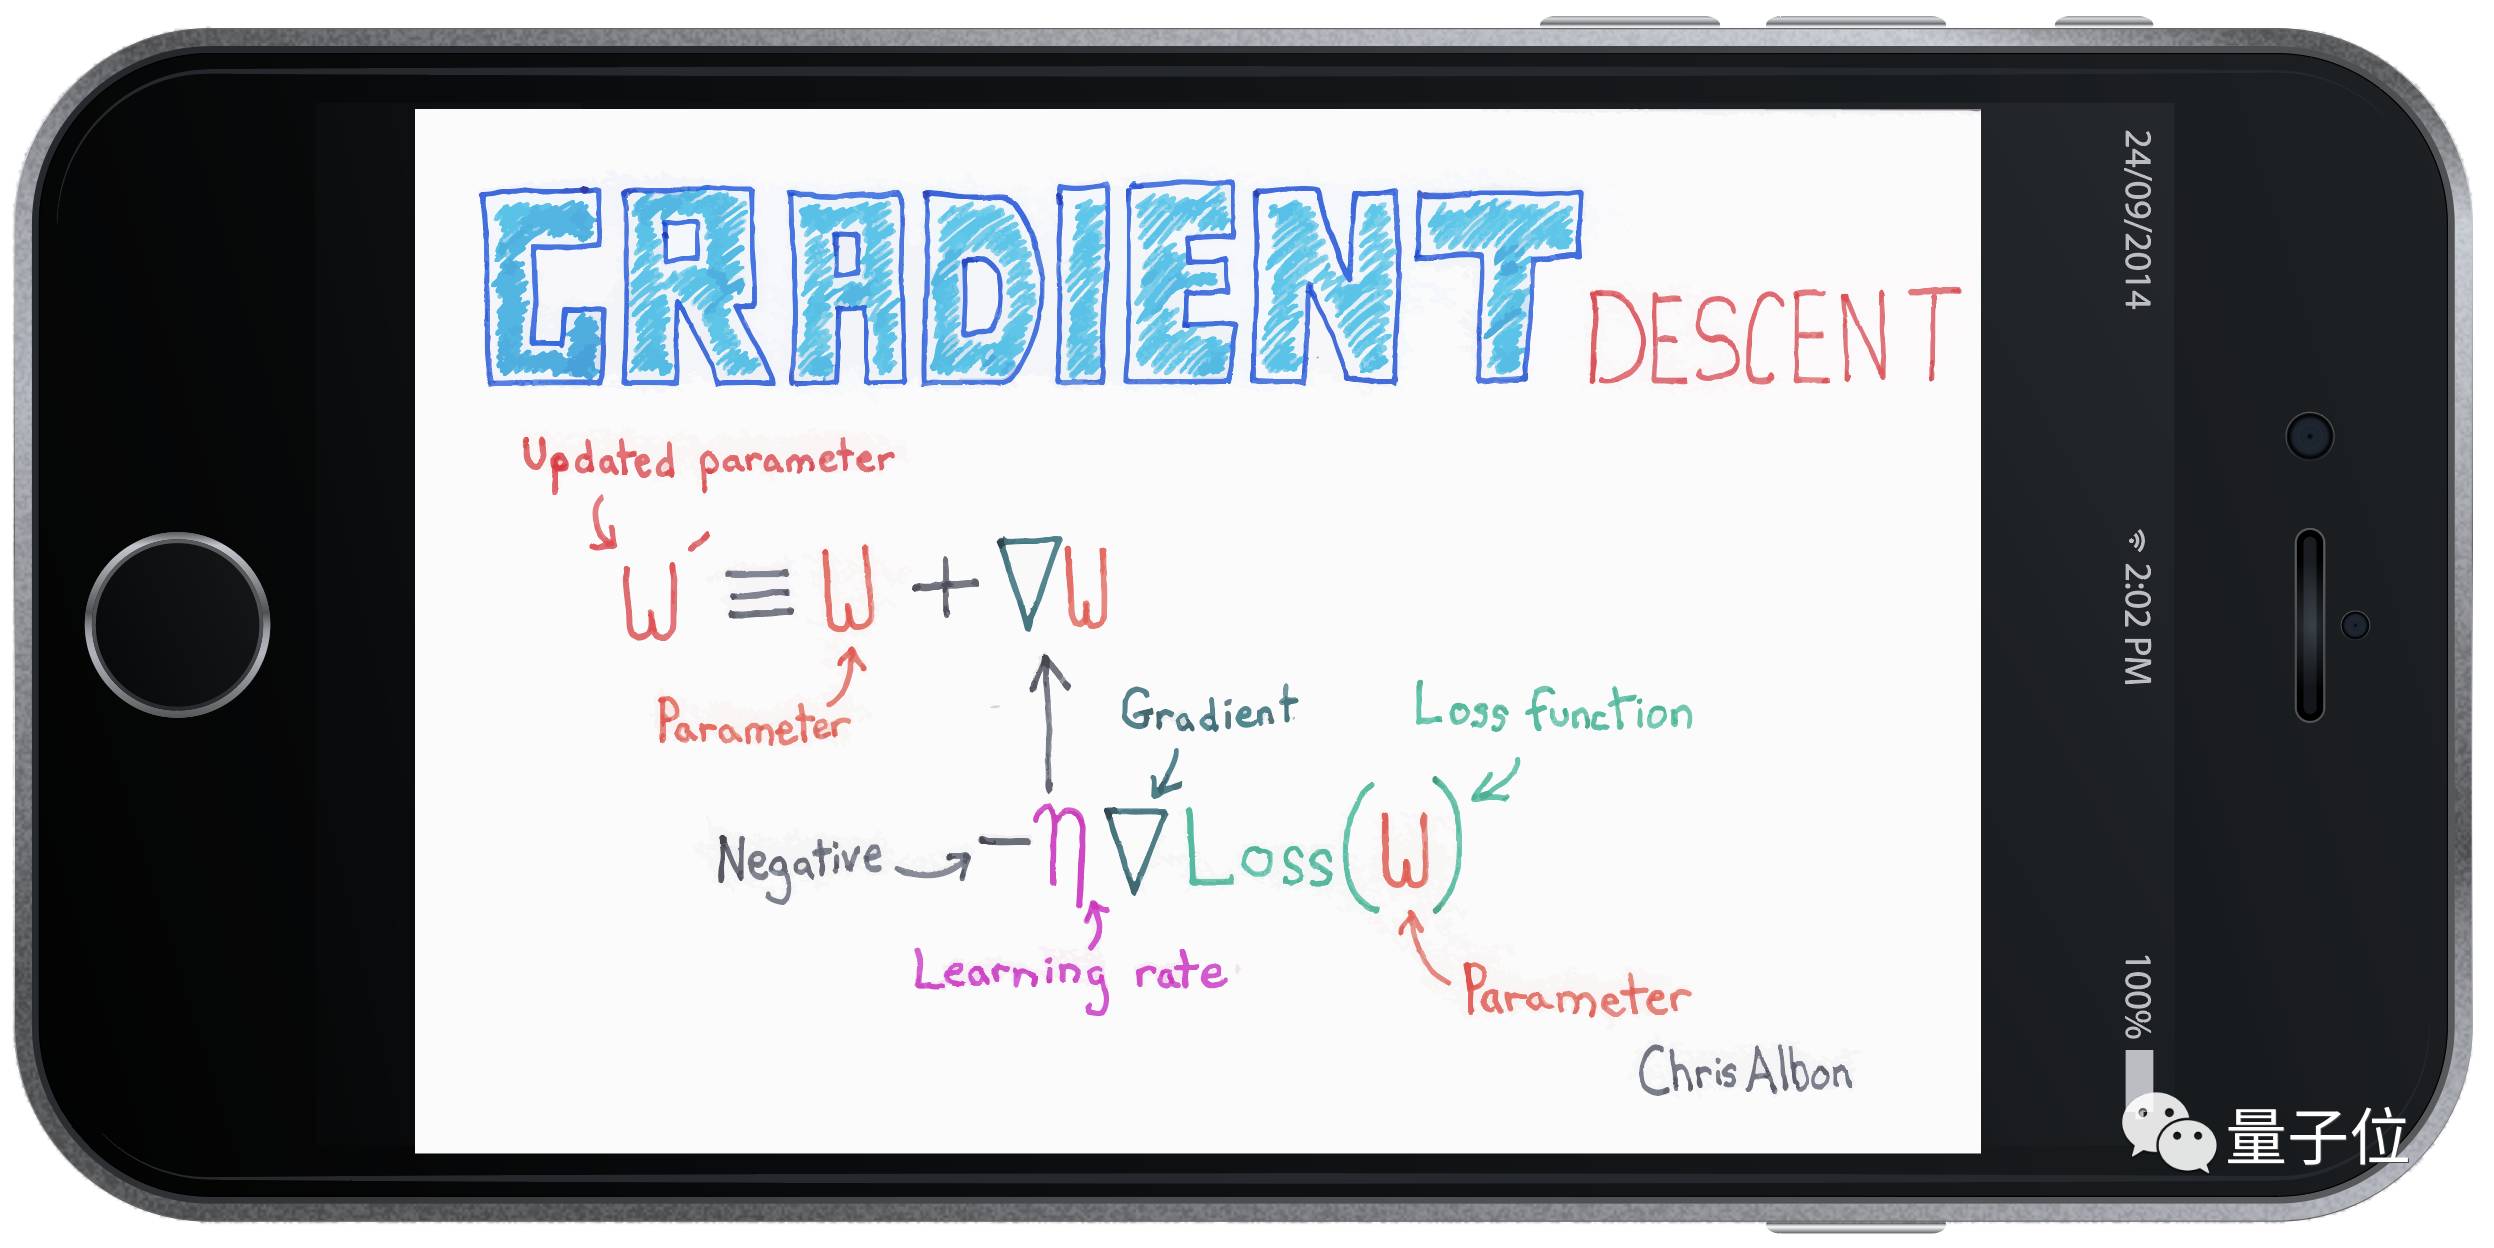 GRADIENT DESCENT
Updated parameter
W′ ≡ W + ∇W
Parameter
Gradient
Loss function
Negative
-η ∇ Loss(W)
Learning rate
Parameter
Chris Albon
24/09/2014
2:02 PM
100%
量子位